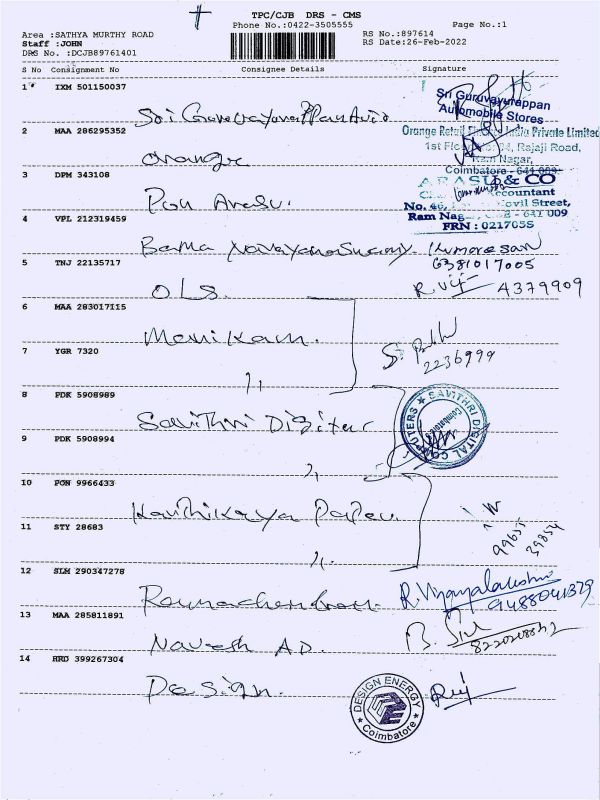 TPC/CJB DRS - CMS
Phone No.:0422-3505555
Page No.:1
Area :SATHYA MURTHY ROAD
RS No.:897614
Staff :JOHN
RS Date:26-Feb-2022
DRS No. :DCJB89761401
S No Consignment No Consignee Details Signature
1 IXM 501150037
Sri Guruvayurappan
Automobile Stores
2 MAA 286295352
Orange Retail India Private Limited
1st Rajaji Road,
Ram Nagar,
Coimbatore - 641 009.
orange
3 DPM 343108
ARASU & CO
Accountant
No. 46, Kovil Street,
Ram Nag 641 009
FRN : 021705S
Pon Arasu.
4 VPL 212319459
Bama Narayanaswamy. Kumaresan
6381017005
5 TNJ 22135717
OLS. R. Viji 4379909
6 MAA 283017115
Manikam.
2236999
7 YGR 7320
,,
8 PDK 5908989
Savithri Digital
SAVITHRI DIGITAL COMPUTERS
Coimbatore
9 PDK 5908994
,,
10 PON 9966433
Karthikaya Paper.
11 STY 28683
99655
39854
,,
12 SLM 290347278
Ramachandran. R. Vijayalakshmi
9488041379
13 MAA 285811891
Navesh AD. B. Siu
14 HRO 399267304
Design.
DESIGN ENERGY
Coimbatore